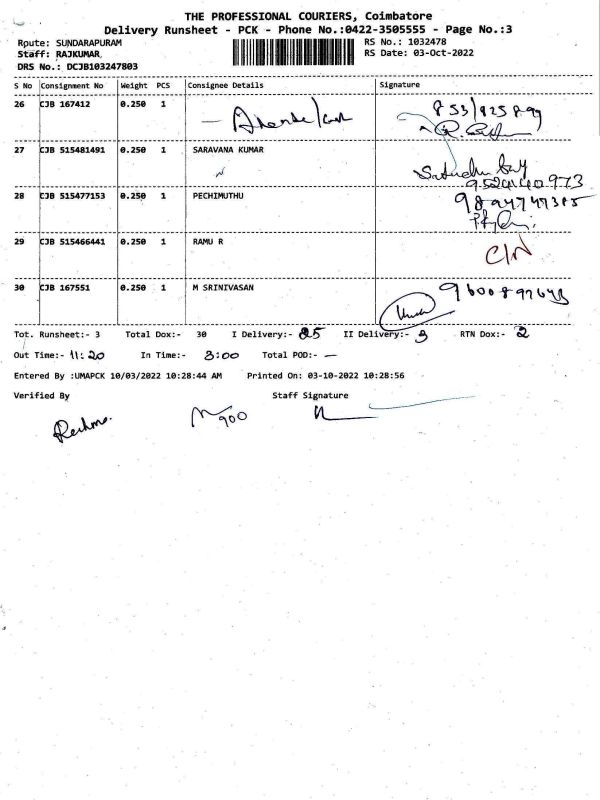 THE PROFESSIONAL COURIERS, Coimbatore
Delivery Runsheet - PCK - Phone No.:0422-3505555 - Page No.:3
Route: SUNDARAPURAM RS No.: 1032478
Staff: RAJKUMAR RS Date: 03-Oct-2022
DRS No.: DCJB103247803
S No Consignment No Weight PCS Consignee Details Signature
26 CJB 167412 0.250 1
27 CJB 515481491 0.250 1 SARAVANA KUMAR
28 CJB 515477153 0.250 1 PECHIMUTHU
29 CJB 515466441 0.250 1 RAMU R C/N
30 CJB 167551 0.250 1 M SRINIVASAN
Tot. Runsheet:- 3 Total Dox:- 30 I Delivery:- 25 II Delivery:- 3 RTN Dox:- 2
Out Time:- 11:20 In Time:- 3:00 Total POD:- —
Entered By :UMAPCK 10/03/2022 10:28:44 AM Printed On: 03-10-2022 10:28:56
Verified By Staff Signature
900